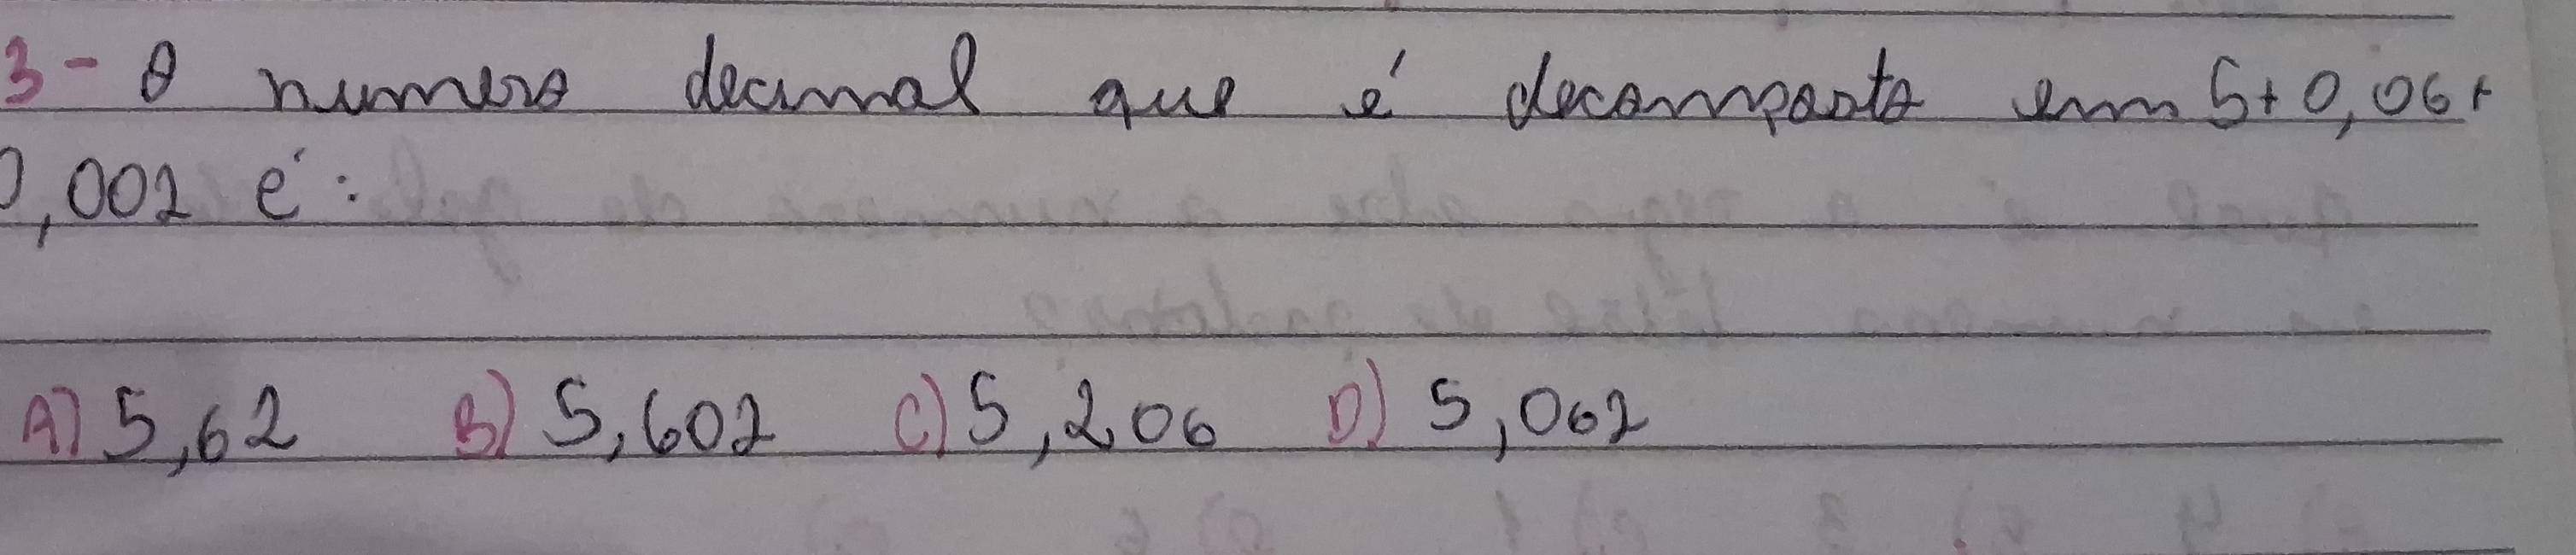 3- O numero decimal que é decomposto em 5+0,06+
0,002 é:
A) 5,62 B) 5,602 C) 5,206 D) 5,062